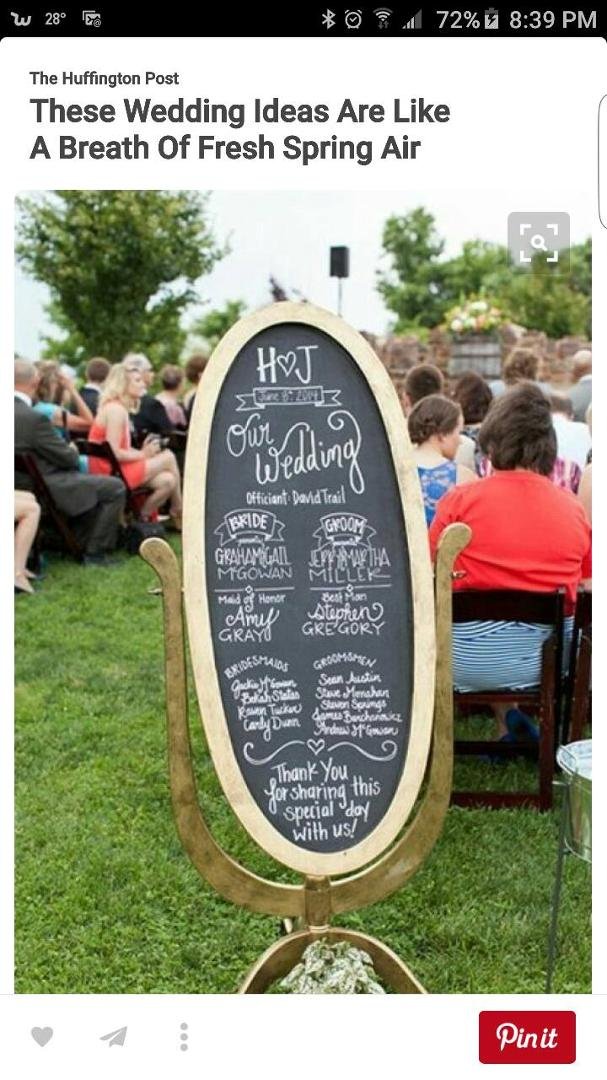 28°
72%
8:39 PM
The Huffington Post
These Wedding Ideas Are Like
A Breath Of Fresh Spring Air
H♡J
June 8th 2014
Our
Wedding
Officiant: David Trail
BRIDE
GROOM
GRAHAM GAIL
MCGOWAN
JERRY MARTHA
MILLER
Maid of Honor
Amy
GRAY
Best Man
Stephen
GREGORY
BRIDESMAIDS
Jackie McGowan
Bekah States
Raven Tucker
Candy Dunn
GROOMSMEN
Sean Austin
Steve Monahan
Steven Springs
James Banchanowicz
Andrew McGowan
Thank You
for sharing this
special day
with us!
Pin it